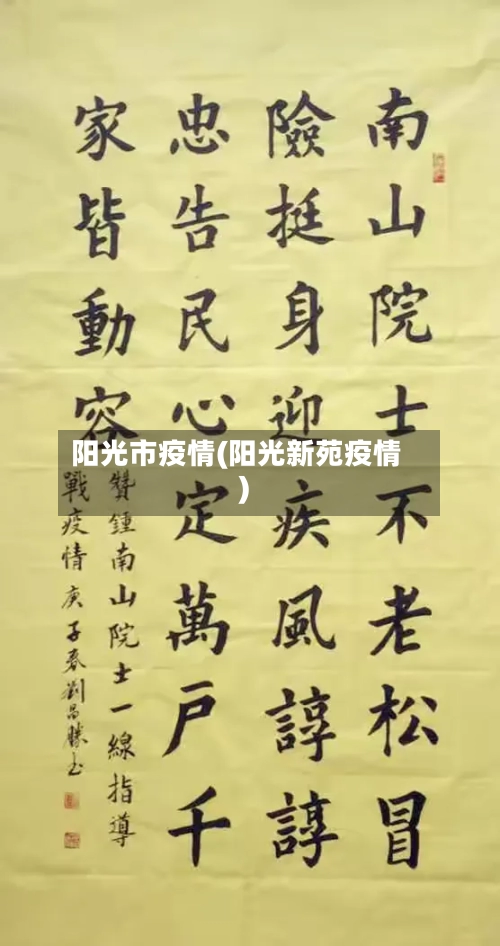 南山院士不老松冒
險挺身迎疾風諄諄
忠告民心定萬戶千
家皆動容
贊鍾南山院士一線指導
戰疫情庚子春劉昌勝书
阳光市疫情(阳光新苑疫情
)